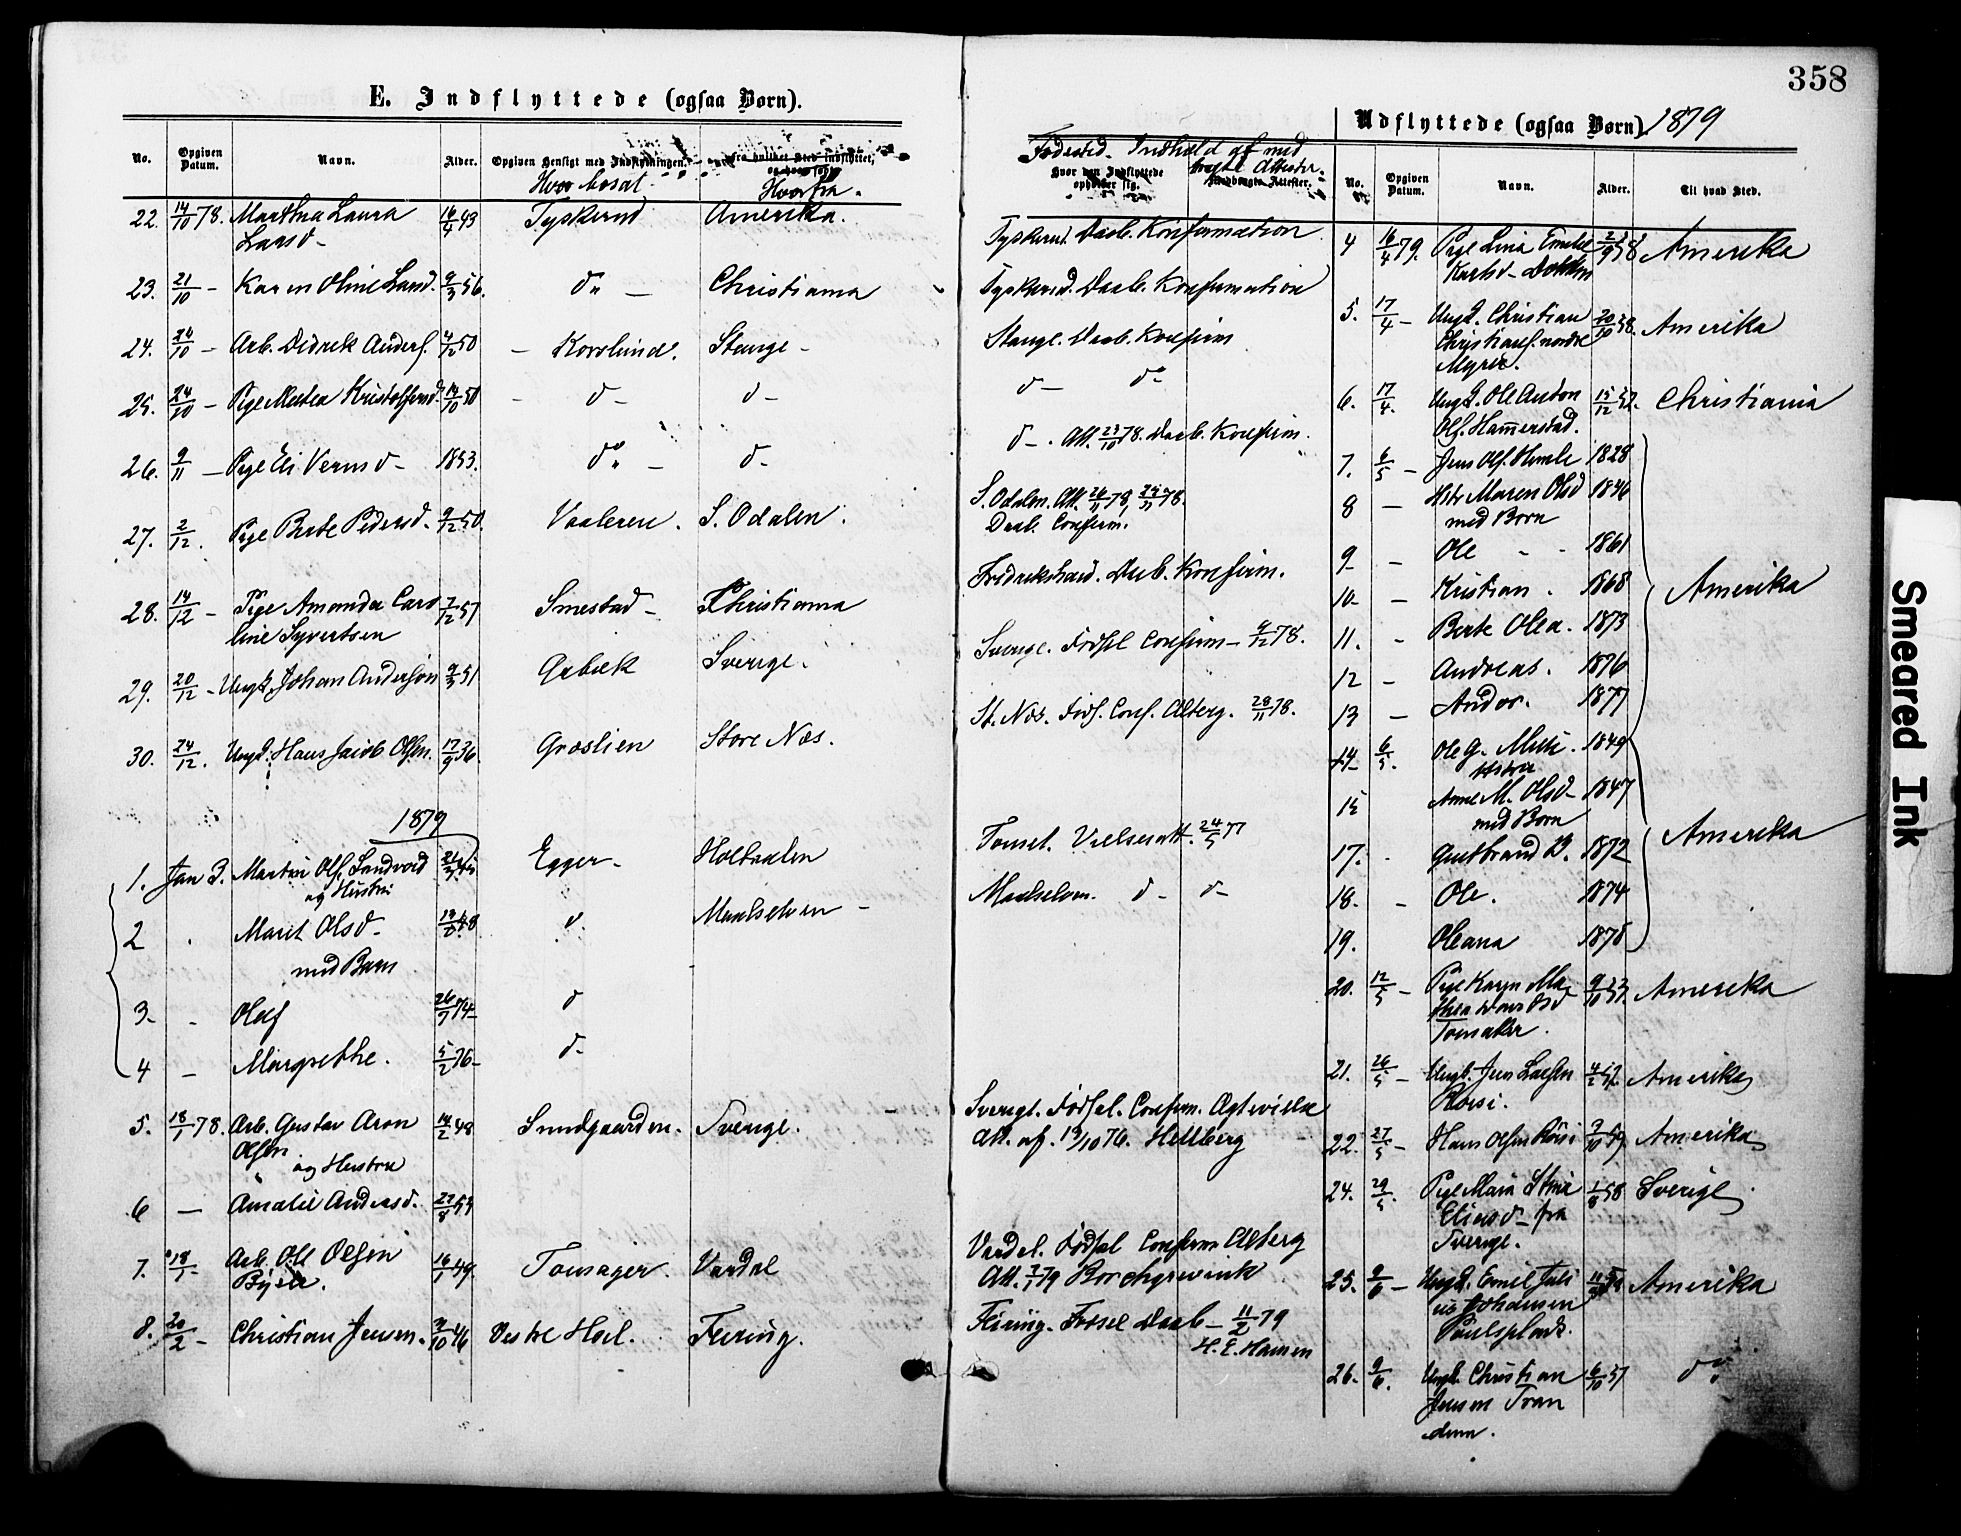 358
E. Indflyttede (ogsaa Børn).
No.
Opgiven Datum.
Navn.
Alder.
Opgiven Hensigt med Indflytningen.
Hvor bosat.
Fra hvilket Sted indflyttet,
Hvorfra.
22. 14/10 78. Marthea Laura 16/4 43 Tyskerud Amerika.
Larsd.
23. 21/10 – Karen Oline Land. 9/3 56. do – Christiania
24. 24/10 – Arb. Didrek Anders. 4/12 50 – Korslund. Stange –
25. 24/10 – Pige Marthea Kristoffersd. 14/10 50 – d – d –
26. 9/11 – Pige Eli Vernsd – 1853. do – d –
27. 2/12. Pige Berte Pedersd. 9/12 50. Vaaleren. S. Odalen.
28. 14/12 – Pige Amanda Caro 7/12 57 Smestad – Christiania
line Syvertsen
29. 20/12 – Ungk. Johan Anderson 2/3 51 Gabæk Sverige.
30. 24/12. Ungk. Hans Jacob Olsen. 17/9 36. Groslien Store Næs.
1879
1. Jan 3. Martin Ols. Sandvold Egger – Holtaalen
og Hustru
2 . Marit Olsd – 48 d. Maalselven –
med Barn
3 – . Oluf 26/7 74 – d
4 – Margrethe. 5/2 76 – d –
5. 18/1 78. Arb. Gustav Aron 14/2 48 Sundgaarden. Sverige.
Olsen
og Hustru
6 – Amalie Andersd. 22/8 53
7. 18/1 – Arb. Ole Olsen 16/1 49. Tomsager. Vardal
8. 20/2 – Christian Jensen. 46 Vestre Hoel. Feiring.
Fødested. Indhold af med
bragte Attester.
Hvor den Indflyttede opholder sig.
Medbragte Attester.
Tyskerud. Daab. Konfirmation
Tyskerud. Daab. Konfirmation
Stange. Daab. Konfirm
d – do
d – . Att. 23/10 78. Daab. Konfirm.
S. Odalen. Att. 26/11 78,
Daab. Confirm.
Fredrikshald. Daab. Konfirm.
Sverige. Fødsel Confirm – 9/12 78.
St. Næs. Føds. Conf. Alterg. 28/11 78.
Tønset. Vielsesatt. 24/5 77
Maalselven. d – d –
Sverige. Fødsel. Confirm. Ægtevielse
Att. af. 19/10 76. Hellberg
Vardal. Fødsel Confirm Alterg
Att. 7/1 79 Borchgrevink
Feiring. Fødsel Daab – 11/2 79
H. E. Hansen
Udflyttede (ogsaa Børn) 1879
No.
Opgiven Datum.
Navn.
Alder.
Til hvad Sted.
4 16/4 79. Pige Lina Emelie 2/9 58 Amerika
Karlsd –
5. 17/4 – Ungk. Christian 20/10 58. Amerika
Christians. nordre
Myrer.
6. 17/4. Ungk. Ole Anton 15/12 52. Christiania
Ols. Hammerstad.
7. 6/5 – Jens Ols. Homle 1828
8 – Hstr Maren Olsd 1836
med Børn
9 – – Ole – – 1861
10 – – Kristian . 1868 Amerika
11. – Berte Olea. 1873
12 – Andreas. 1876
13 – Andor. 1877
14 6/5. Ole G. Melli . 1849
Hstru
15 Anne M. Olsd – 1847
med Børn Amerika
17. . Gudbrand . 1872
18. – Ole. 1874
19. Oleana 1878
20. 12/5 – Pige Karen Ma Amerika
Tomsaker.
21. 26/5 – Ungk. Jens Larsen Amerika
22. 27/5 – Hans Olsen 9/10 59 Amerika
24. 29/5. Pige Maria Stina 1/8 58 Sverige
Eliasd – fra
Sverige.
25. 9/6 – Ungk. Emil Juli Amerika
us Johansen
26. 9/6. Ungk. Christian 6/10 57 do
Jensen Tran
dem.
Smeared Ink